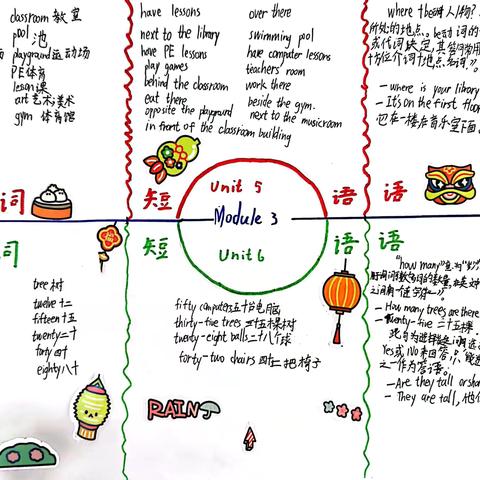 classroom 教室
pool 池
playground 运动场
PE 体育
lesson 课
art 艺术;美术
gym 体育馆
词
have lessons
over there
next to the library
swimming pool
have PE lessons
have computer lessons
play games
teachers' room
behind the classroom
work there
eat there
beside the gym.
opposite the playground
next to the music room
in front of the classroom building
短
Unit 5
语
Module 3
短
Unit 6
语
where
人物?
所处的地点。be动词的
或代词决定,其答句常用
方位介词+地点名词"。
—where is your library
—It's on the first floor
语
词
tree 树
twelve 十二
fifteen 十五
twenty 二十
forty 四十
eighty 八十
fifty computers 五十台电脑
thirty-five trees 三十五棵树
twenty-eight balls 二十八个球
forty-two chairs 四十二把椅子
RAIN
语
"how many"
—How many trees are there
—Twenty-five 二十五棵.
Yes或No来回答,只能选
之一作为答语。
—Are they tall or sho
—They are tall, 他们